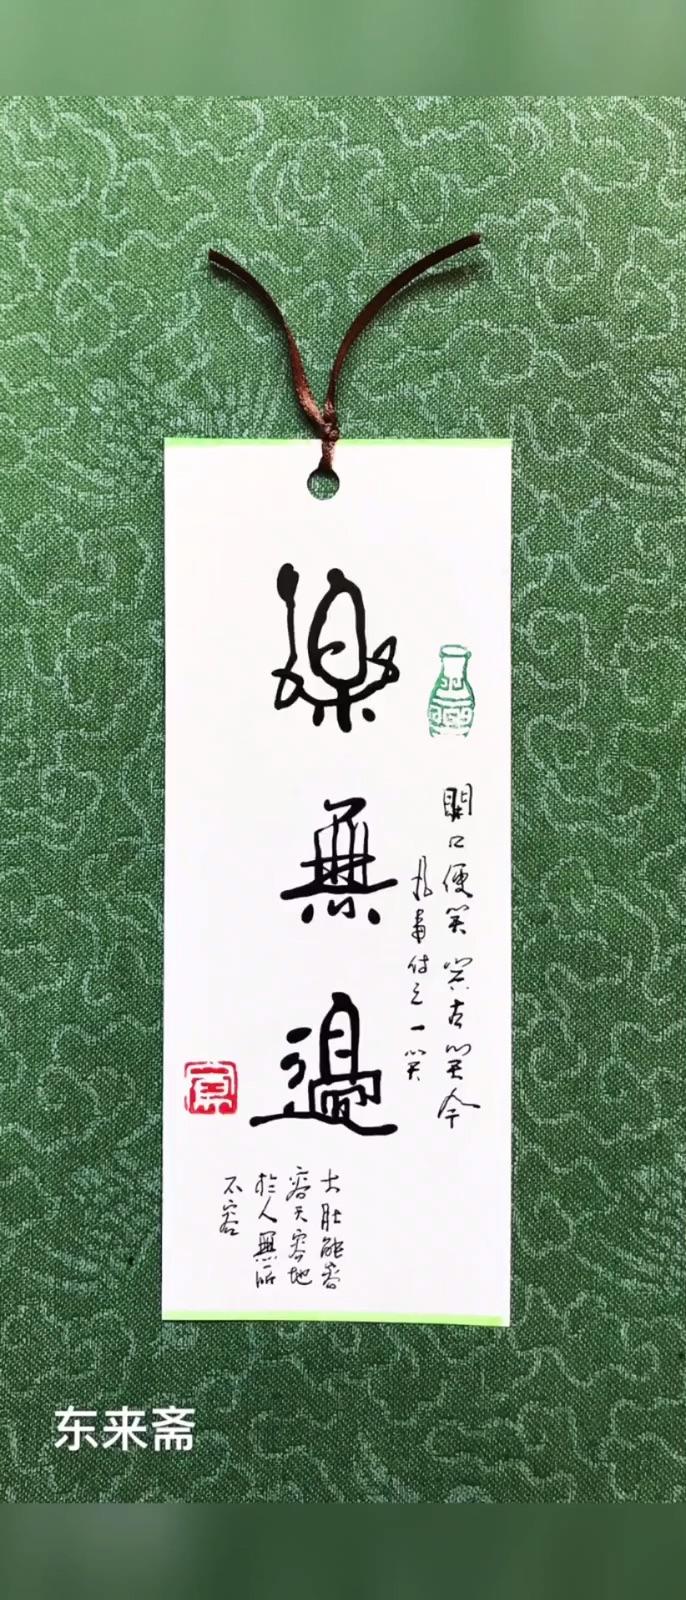 樂無過
開口便笑笑古笑今
凡事付之一笑
大肚能容
容天容地
於人無所
不容
东来斋